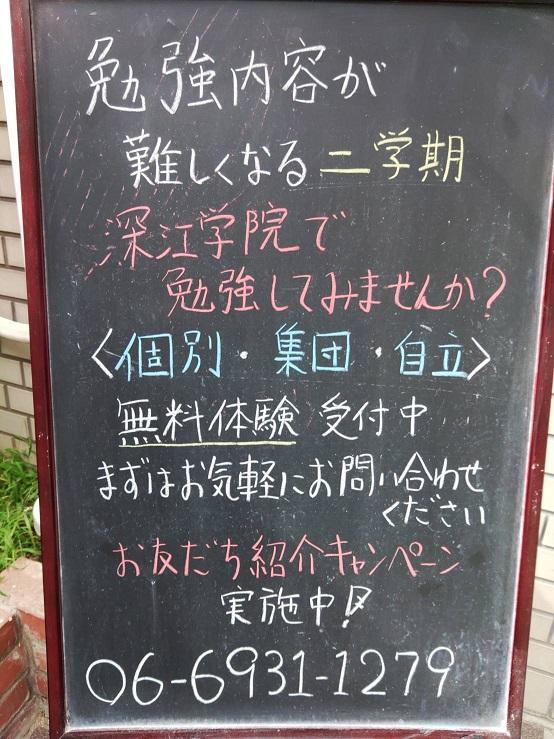 勉強内容が
難しくなる二学期
深江学院で
勉強してみませんか?
〈個別・集団・自立〉
無料体験 受付中
まずはお気軽にお問い合わせ
ください
お友だち紹介キャンペーン
実施中!
06-6931-1279